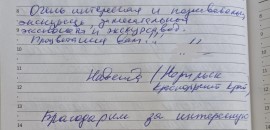 Очень интересная и познавательная
экскурсия, замечательный
экспонат и экскурсовод.
Процветания вам.
Надежда / Норильск
Красноярск. край,
Благодарим за интересную